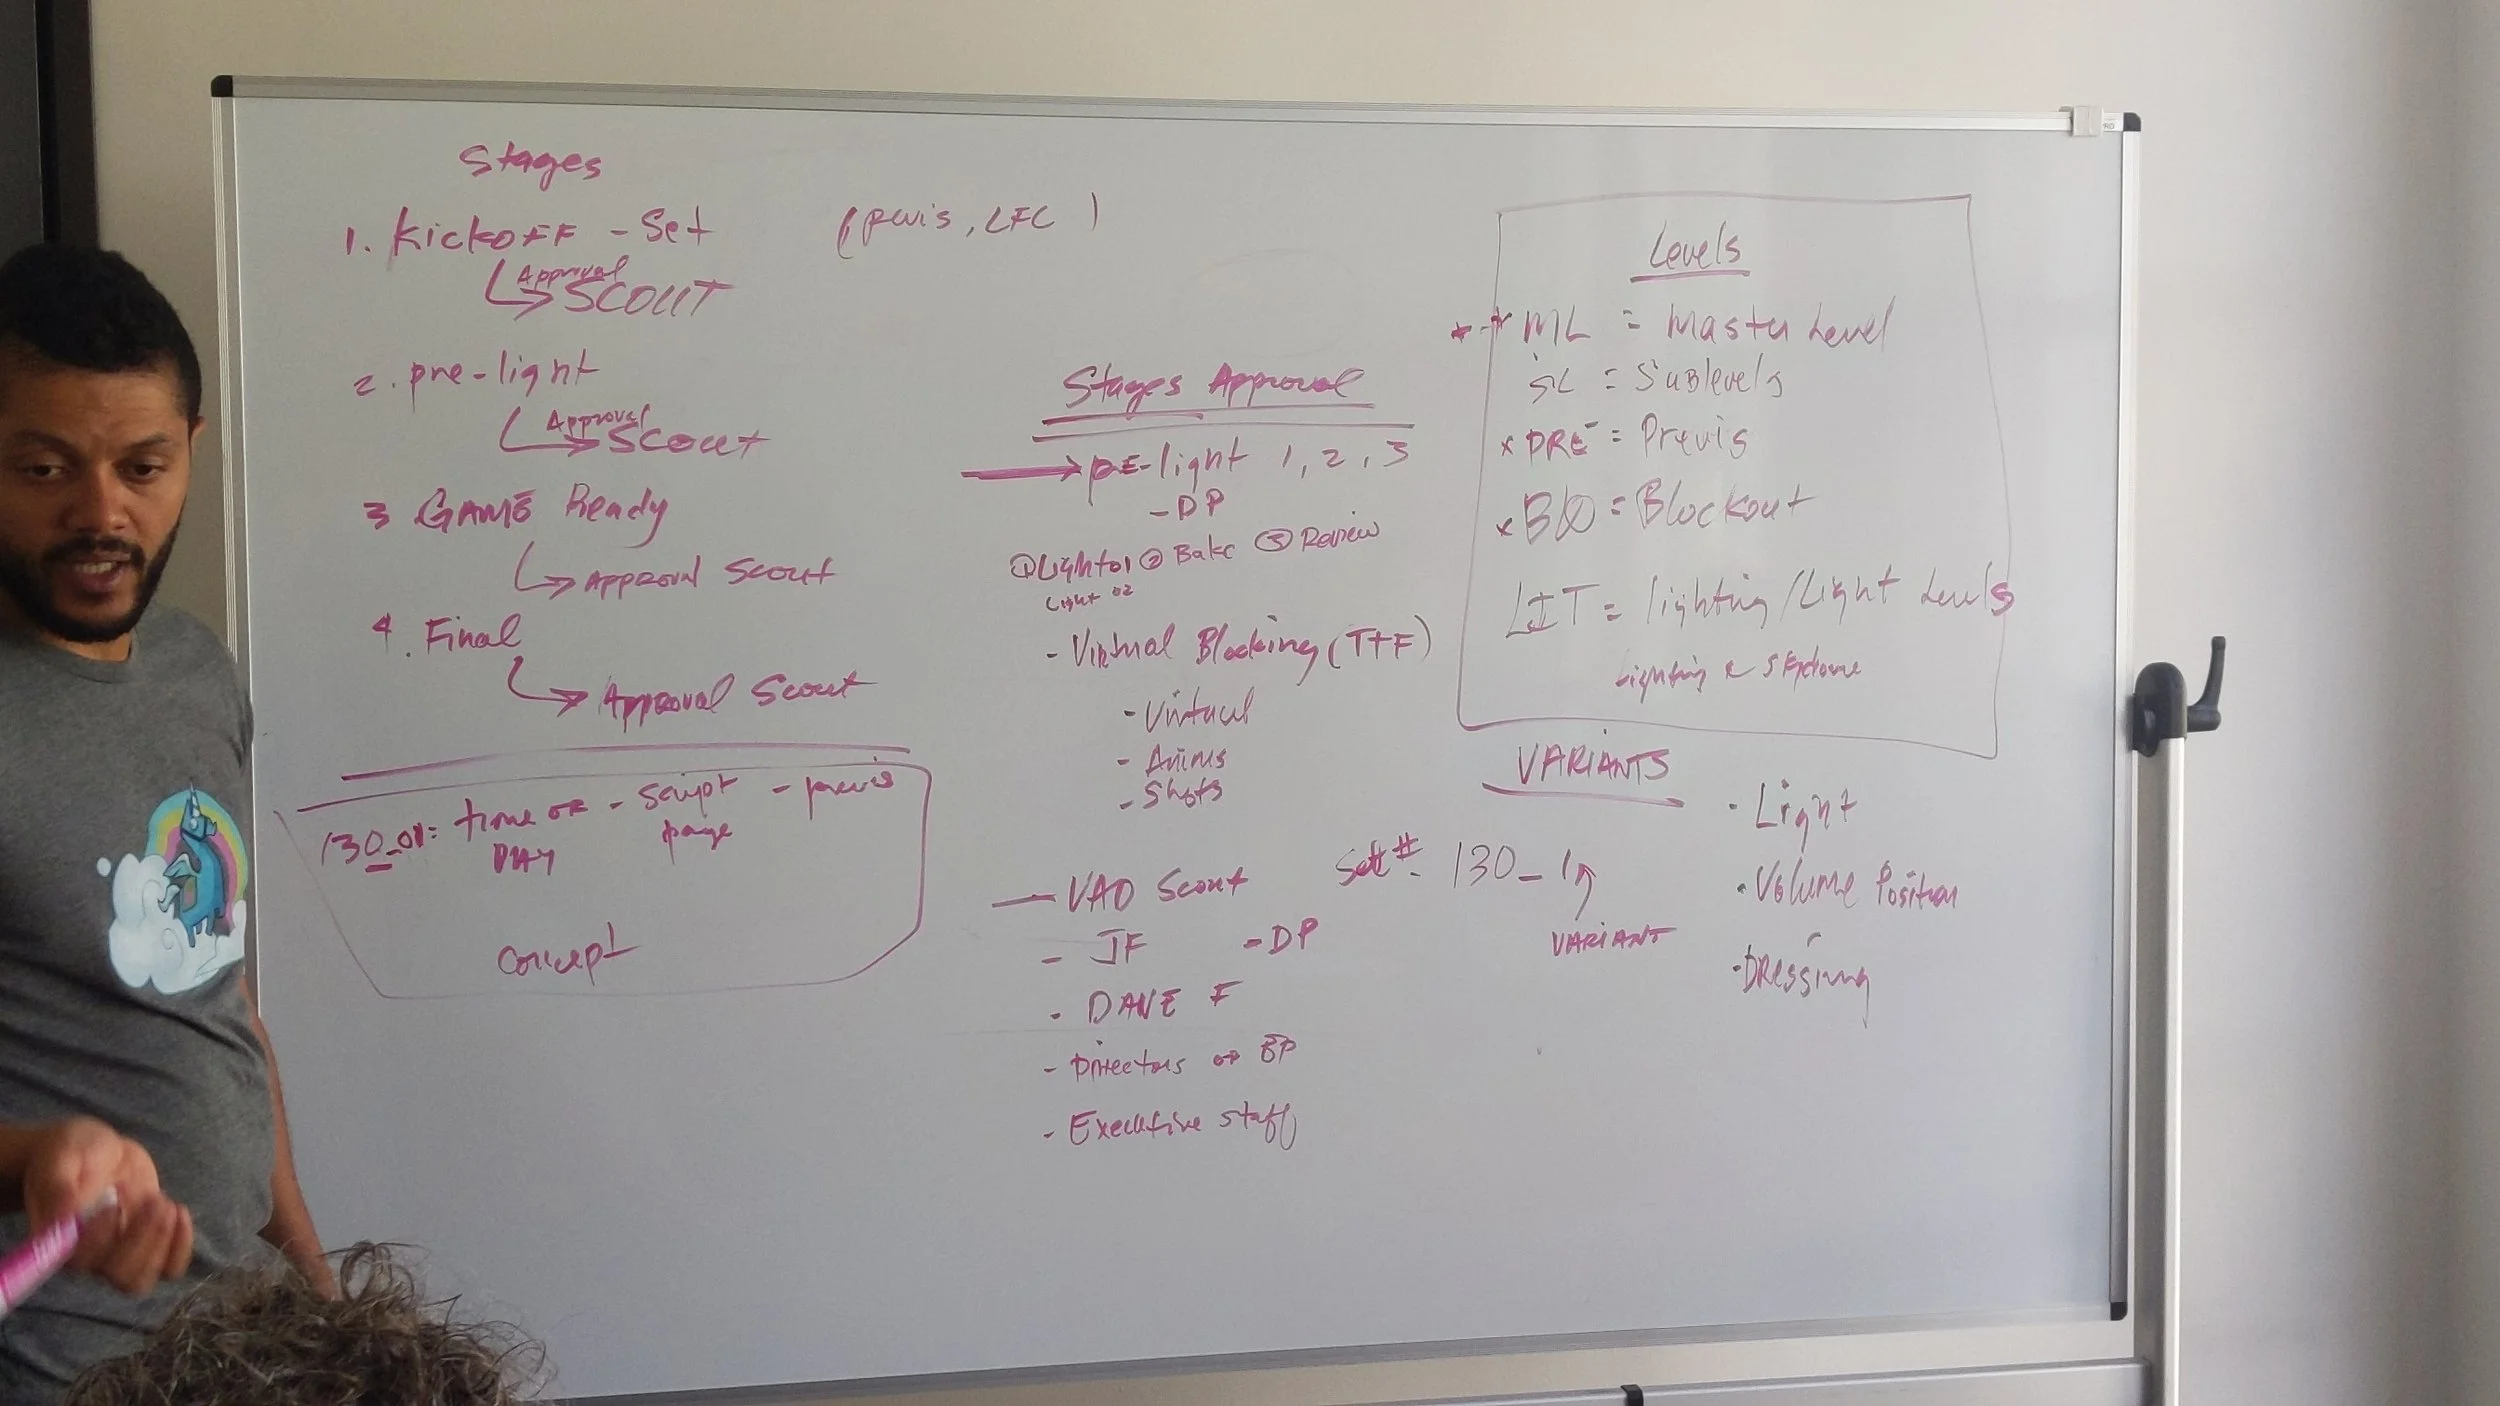 Stages
1. Kickoff - Set (previs, LFC)
Approval
SCOUT
2. pre-light
Approval
Scout
3 GAME Ready
Approval Scout
4. Final
Approval Scout
130_01: time of - script - previs
DAY page
concept
Stages Approval
pre-light 1, 2, 3
- DP
① Light 01 ② Bake ③ Review
Light 02
- Virtual Blocking (T+F)
- Virtual
- Anims
- Shots
VAD Scout
- JF - DP
- DAVE F
- Directors or EP
- Executive staff
Levels
ML = Master Level
SL = Sublevels
* PRE = Previs
* BLO = Blockout
LIT = Lighting/Light Levels
Lighting
VARIANTS
· Light
· Volume Position
· Dressing
Set #. 130_
VARIANT